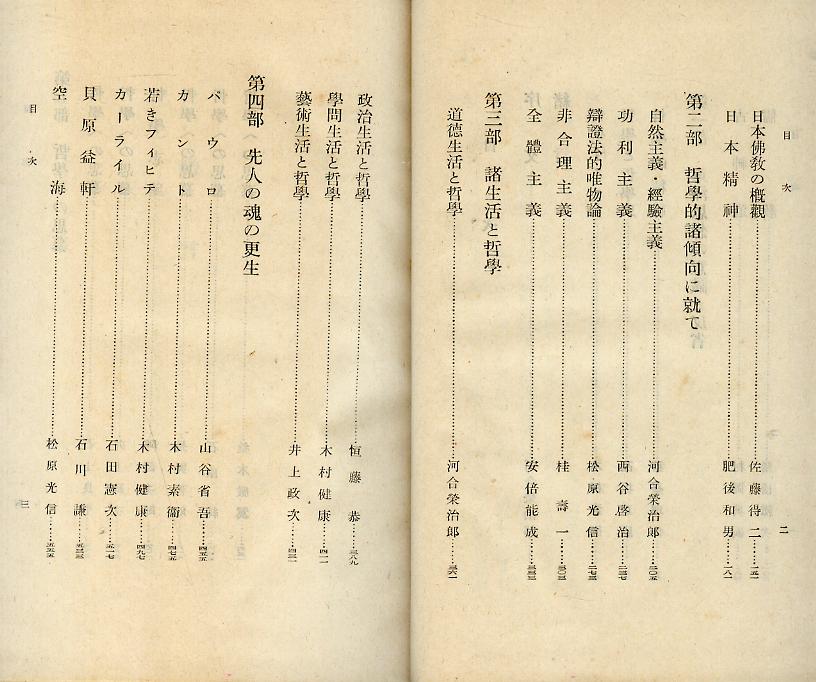 目次
二
日本佛敎の槪觀……佐藤得二……一五一
日本精神……肥後和男……一八一
第二部 哲學的諸傾向に就て
自然主義・經驗主義……河合榮治郎……二〇五
功利主義……西谷啓治……二三七
辯證法的唯物論……松原光信……二七三
非合理主義……桂壽一……三〇三
全體主義……安倍能成……三三三
第三部 諸生活と哲學
道德生活と哲學……河合榮治郎……三六一
政治生活と哲學……恒藤恭……三八九
學問生活と哲學……木村健康……四一一
藝術生活と哲學……井上政次……四三一
第四部 先人の魂の更生
パウロ……山谷省吾……四五五
カント……木村素衞……四七五
若きフィヒテ……木村健康……四九七
カーライル……石田憲次……五一七
貝原益軒……石川謙……五三三
空海……松原光信……五五五
目次
三